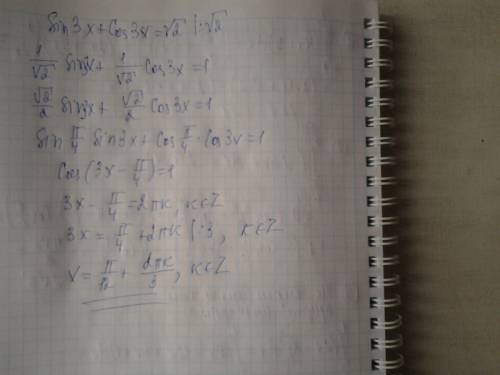 Sin3x + Cos3x = √2 | : √2
1/√2 Sin3x + 1/√2 Cos3x = 1
√2/2 Sin3x + √2/2 Cos3x = 1
Sin π/4 Sin3x + Cos π/4 · Cos3x = 1
Cos(3x - π/4) = 1
3x - π/4 = 2πk, k∈Z
3x = π/4 + 2πk | : 3, k∈Z
x = π/12 + 2πk/3, k∈Z